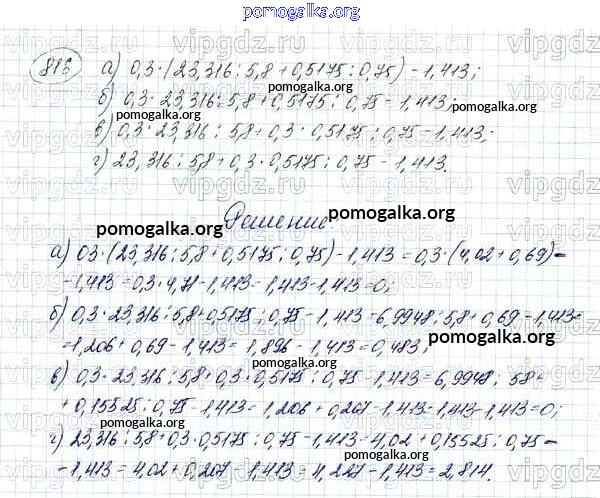 pomogalka.org
816 а) 0,3·(23,316:5,8+0,5175:0,75)-1,413;
б) 0,3·23,316:5,8+0,5175:0,75-1,413;
pomogalka.org
в) 0,3·23,316:5,8+0,3·0,5175:0,75-1,413;
г) 23,316:5,8+0,3·0,5175:0,75-1,413.
Решение.
pomogalka.org
а) 03·(23,316:5,8+0,5175:0,75)-1,413=0,3·(4,02+0,69)-
-1,413=0,3·4,71-1,413=1,413-1,413=0;
б) 0,3·23,316:5,8+0,5175:0,75-1,413=6,9948:5,8+0,69-1,413=
=1,206+0,69-1,413=1,896-1,413=0,483;
pomogalka.org
в) 0,3·23,316:5,8+0,3·0,5175:0,75-1,413=6,9948:58+
+0,15525:0,75-1,413=1,206+0,207-1,413=1,413-1,413=0;
г) 23,316:5,8+0,3·0,5175:0,75-1,413=4,02+0,15525:0,75-
-1,413=4,02+0,207-1,413=4,227-1,413=2,814.
pomogalka.org